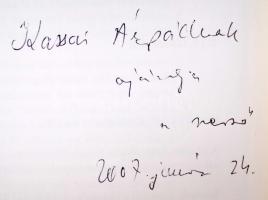 Kassai Árpádnak
ajánlja
a szerző
2007. június 24.